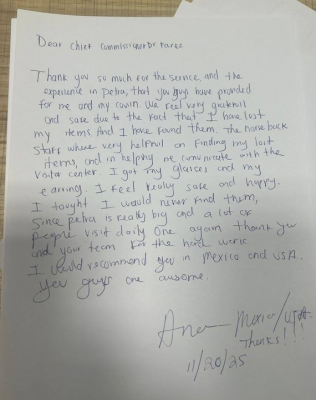 Dear Chief Commissioner Dr Fares
Thank you so much for the service, and the
experience in petra, that you guys have provided
for me and my cousin. We feel very grateful
and safe due to the fact that I have lost
my items And I have found them. The horse back
Staff where very helpful on finding my lost
items, and in helping me comunicate with the
visita center. I got my glasses and my
earring. I feel really safe and happy.
I tought I would never find them,
since petra is really big and a lot of
people visit daily One again thank you
and your team for the hard work
I would recommend you in Mexico and USA.
You guys are awesome.
Ana Mexico/USA
Thanks!!!
11/20/25